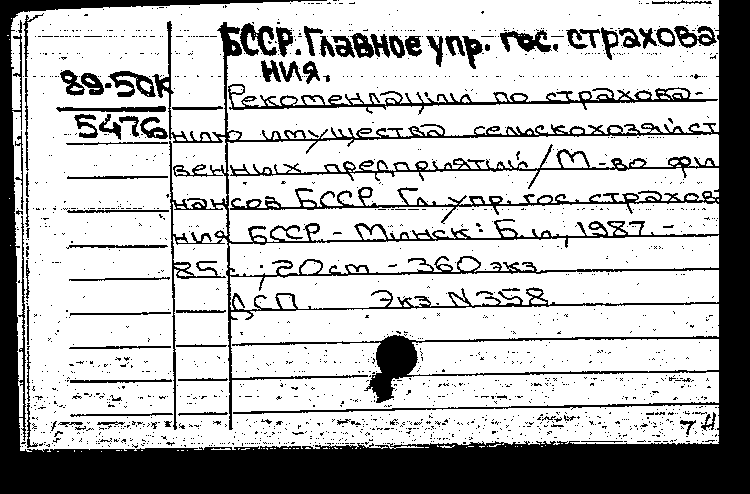 БССР. Главное упр. гос. страхова-
ния.
89-50к
5476
Рекомендации по страхова-
нию имущества сельскохозяйст
венных предприятий / М-во фи
нансов БССР. Гл. упр. гос. страхова
ния БССР. - Минск: Б. и., 1987. -
85 с.; 20 см - 360 экз.
ДСП. Экз. N 358.